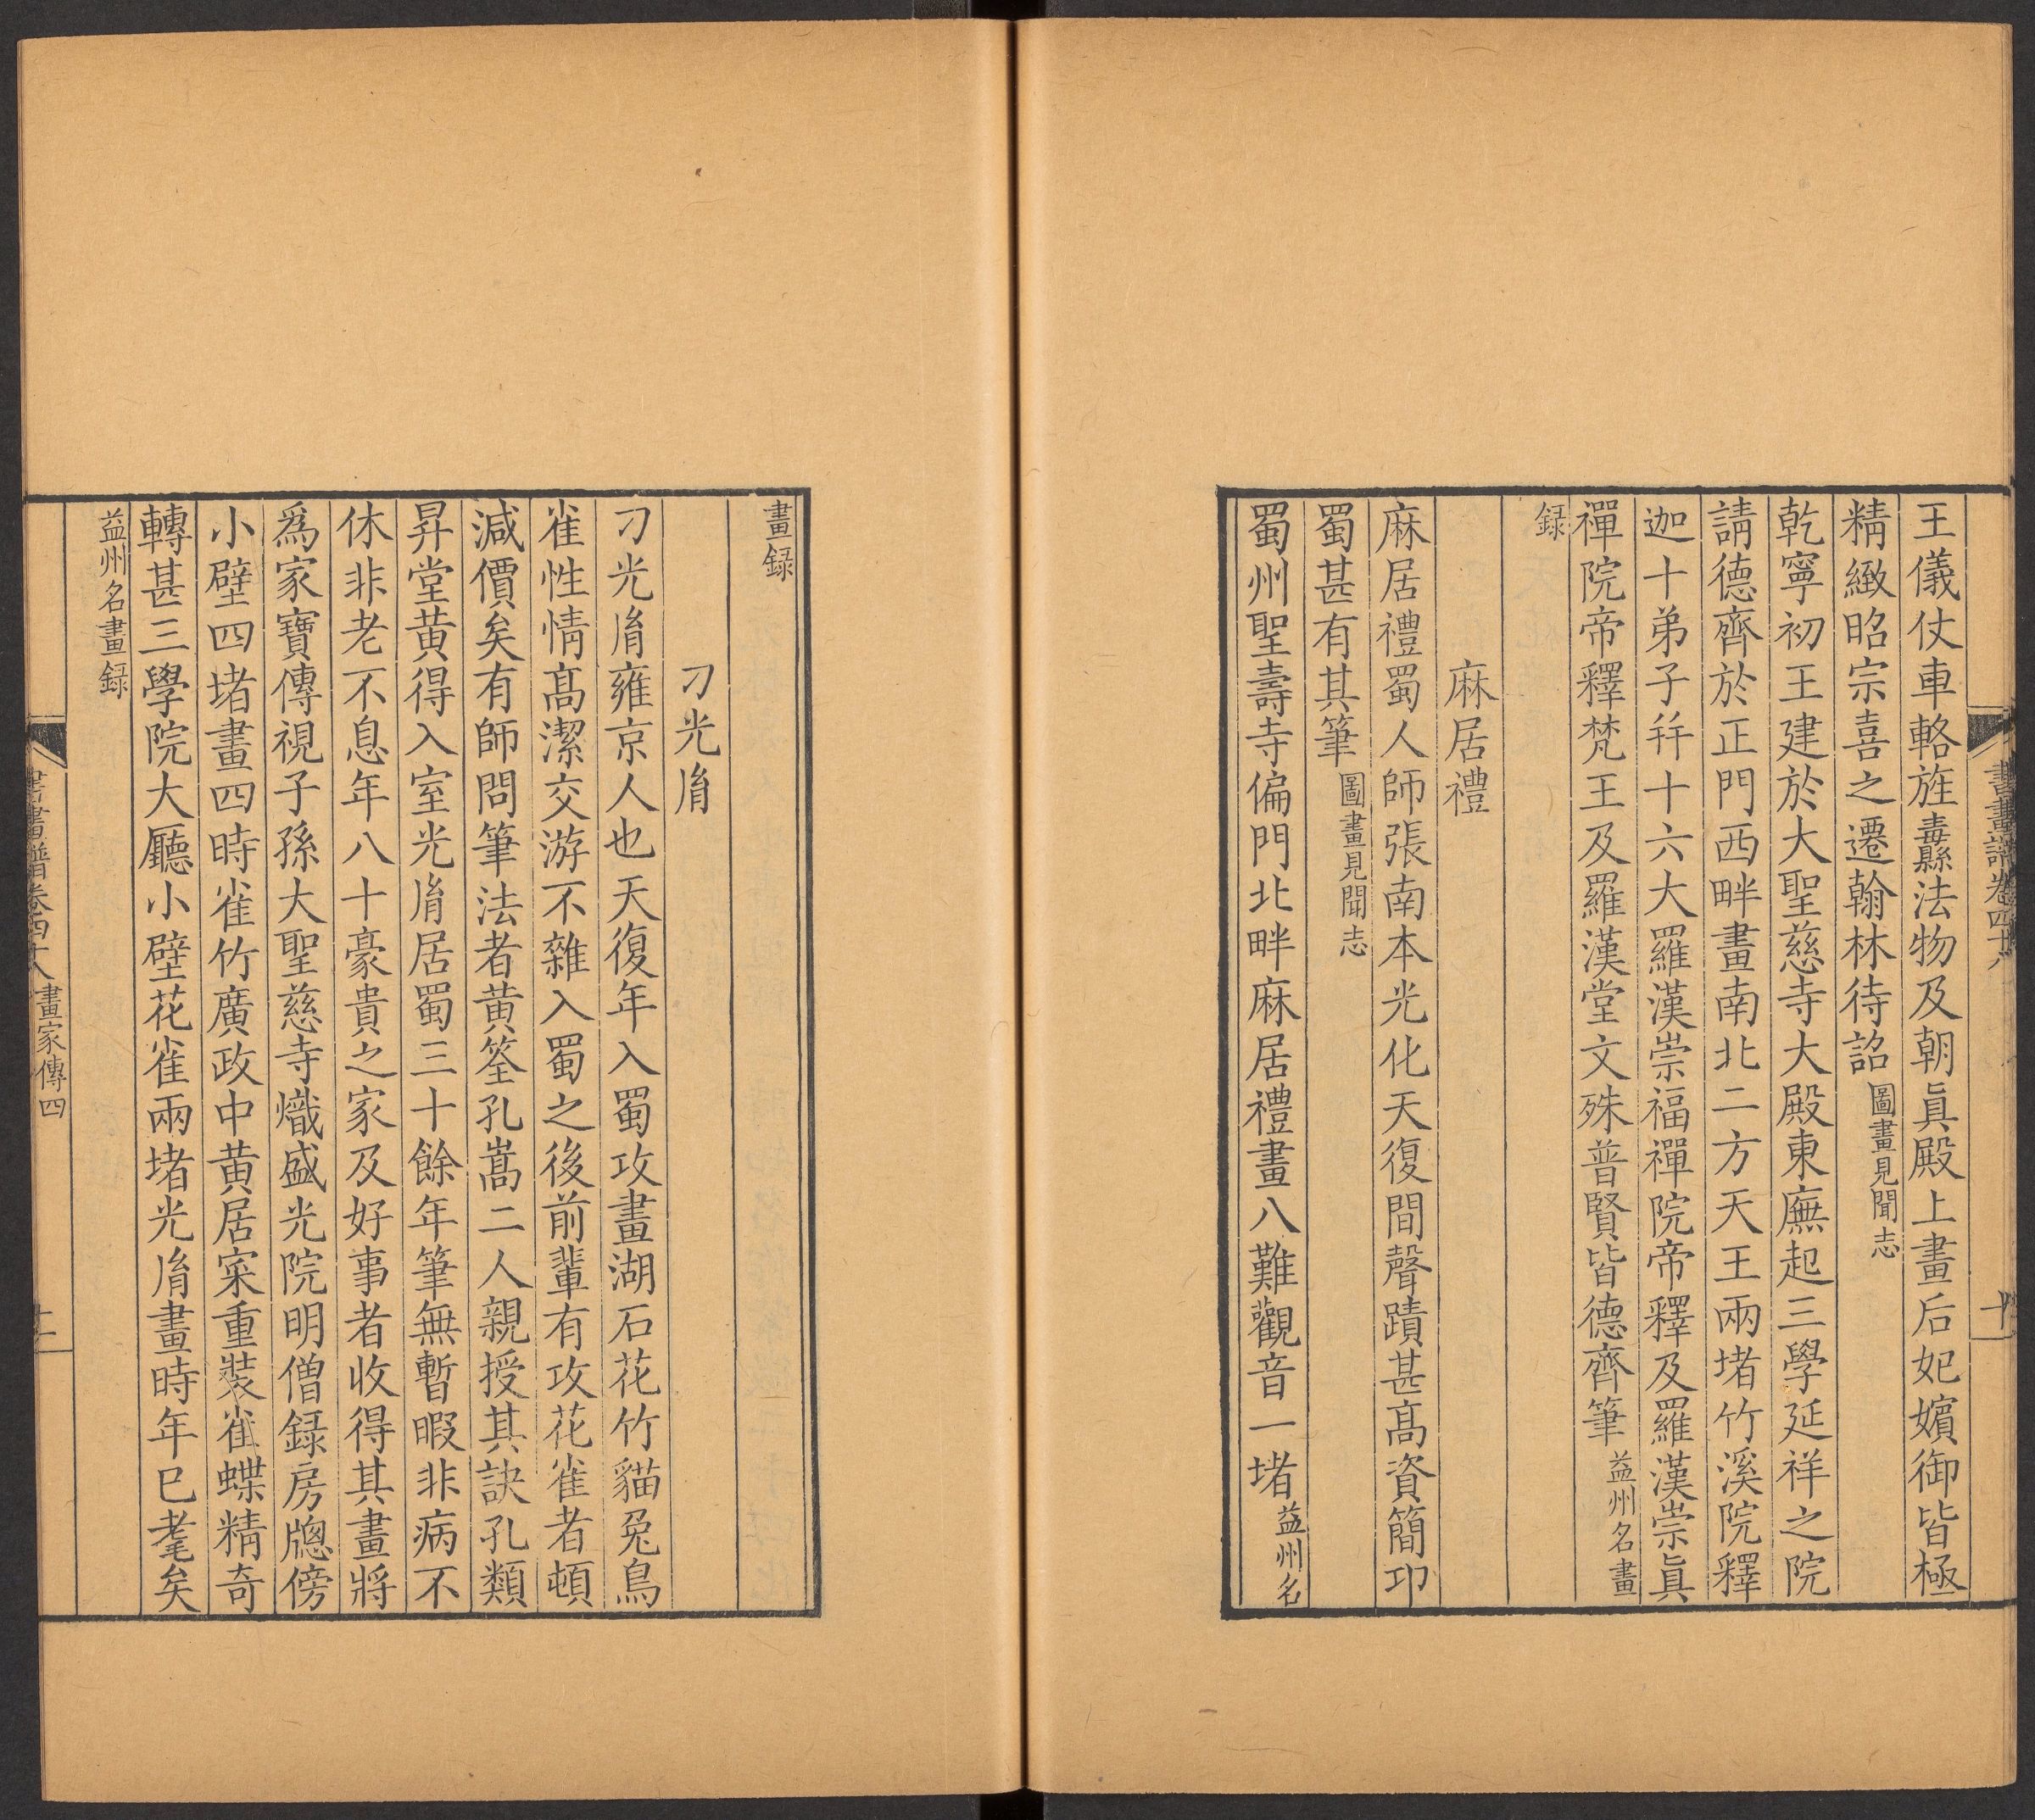 書畫譜卷四十八
十
王儀仗車輅旌纛法物及朝眞殿上畫后妃嬪御皆極
精緻昭宗喜之遷翰林待詔圖畫見聞志
乾寧初王建於大聖慈寺大殿東廡起三學延祥之院
請德齊於正門西畔畫南北二方天王兩堵竹溪院釋
迦十弟子幷十六大羅漢崇福禪院帝釋及羅漢崇眞
禪院帝釋梵王及羅漢堂文殊普賢皆德齊筆益州名畫
録
麻居禮
麻居禮蜀人師張南本光化天復間聲蹟甚高資簡卭
蜀甚有其筆圖畫見聞志
蜀州聖壽寺偏門北畔麻居禮畫八難觀音一堵益州名
畫録
刁光胤
刁光胤雍京人也天復年入蜀攻畫湖石花竹貓兔鳥
雀性情高潔交游不雜入蜀之後前輩有攻花雀者頓
減價矣有師問筆法者黄筌孔嵩二人親授其訣孔類
昇堂黄得入室光胤居蜀三十餘年筆無暫暇非病不
休非老不息年八十豪貴之家及好事者收得其畫將
爲家寶傳視子孫大聖慈寺熾盛光院明僧録房牕傍
小壁四堵畫四時雀竹廣政中黄居寀重裝雀蝶精奇
轉甚三學院大廳小壁花雀兩堵光胤畫時年已耄矣
益州名畫録
書畫譜卷四十八 畫家傳四
十一